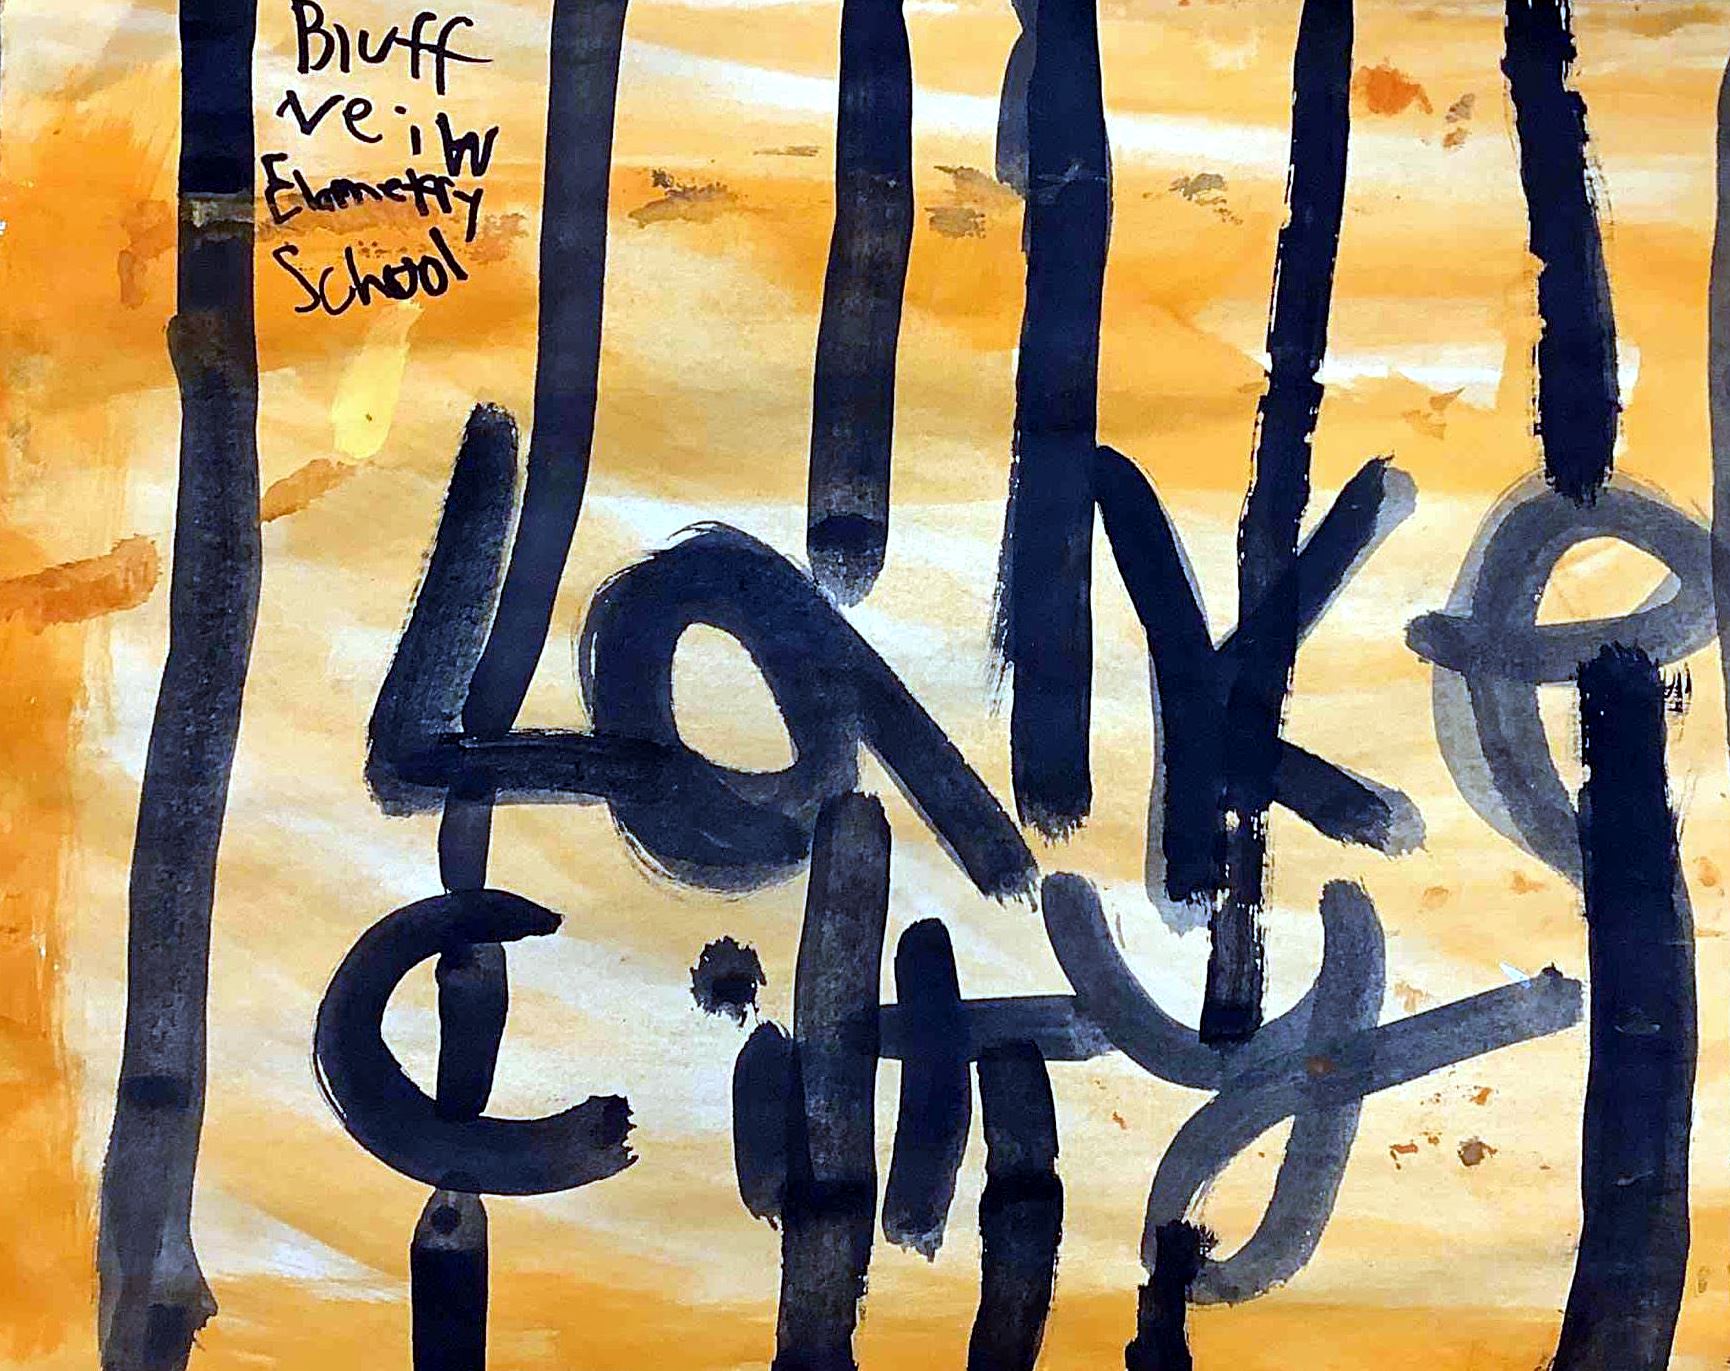 Bluff
veiw
Elametry
School
Lake
City